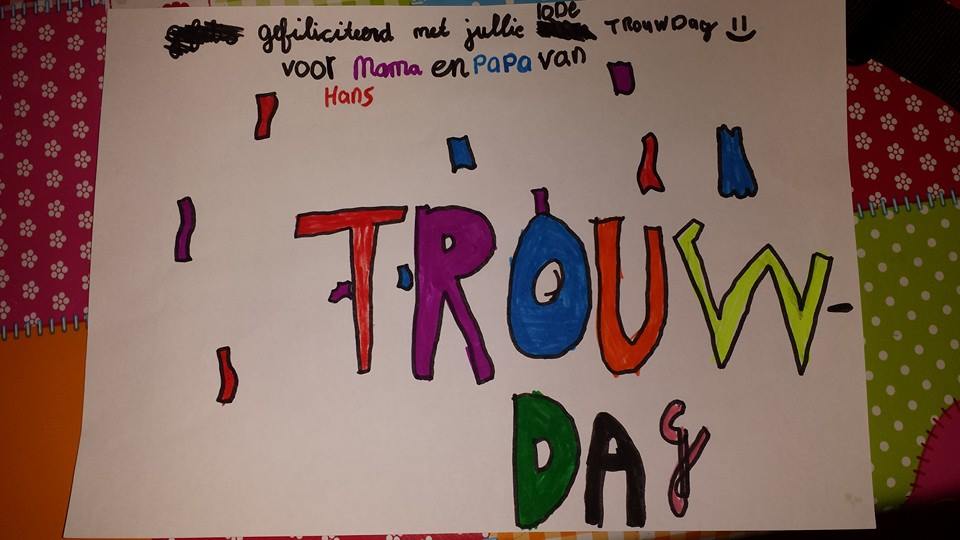 gefiliciteerd met jullie 10De TROUWDag
voor Mama en papa van
Hans
TROUW-
DAg